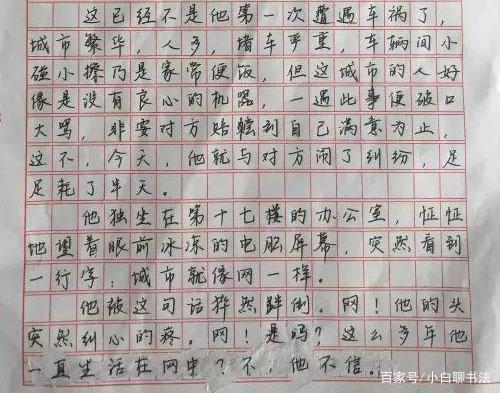 这已经不是他第一次遭遇车祸了，
城市繁华，人多，堵车严重，车辆间小
碰小擦乃是家常便饭，但这城市的人好
像是没有良心的机器，一遇此事便破口
大骂，非要对方赔偿到自己满意为止，
这不，今天，他就与对方闹了纠纷，足
足耗了半天。
他独坐在第十七楼的办公室，怔怔
地望着眼前冰冻的电脑屏幕，突然看到
一行字：城市就像网一样。
他被这句话猝然绊倒。网！他的头
突然纠心的疼。网！是吗？这么多年他
一直生活在网中？不，他不信。
百家号/小白聊书法